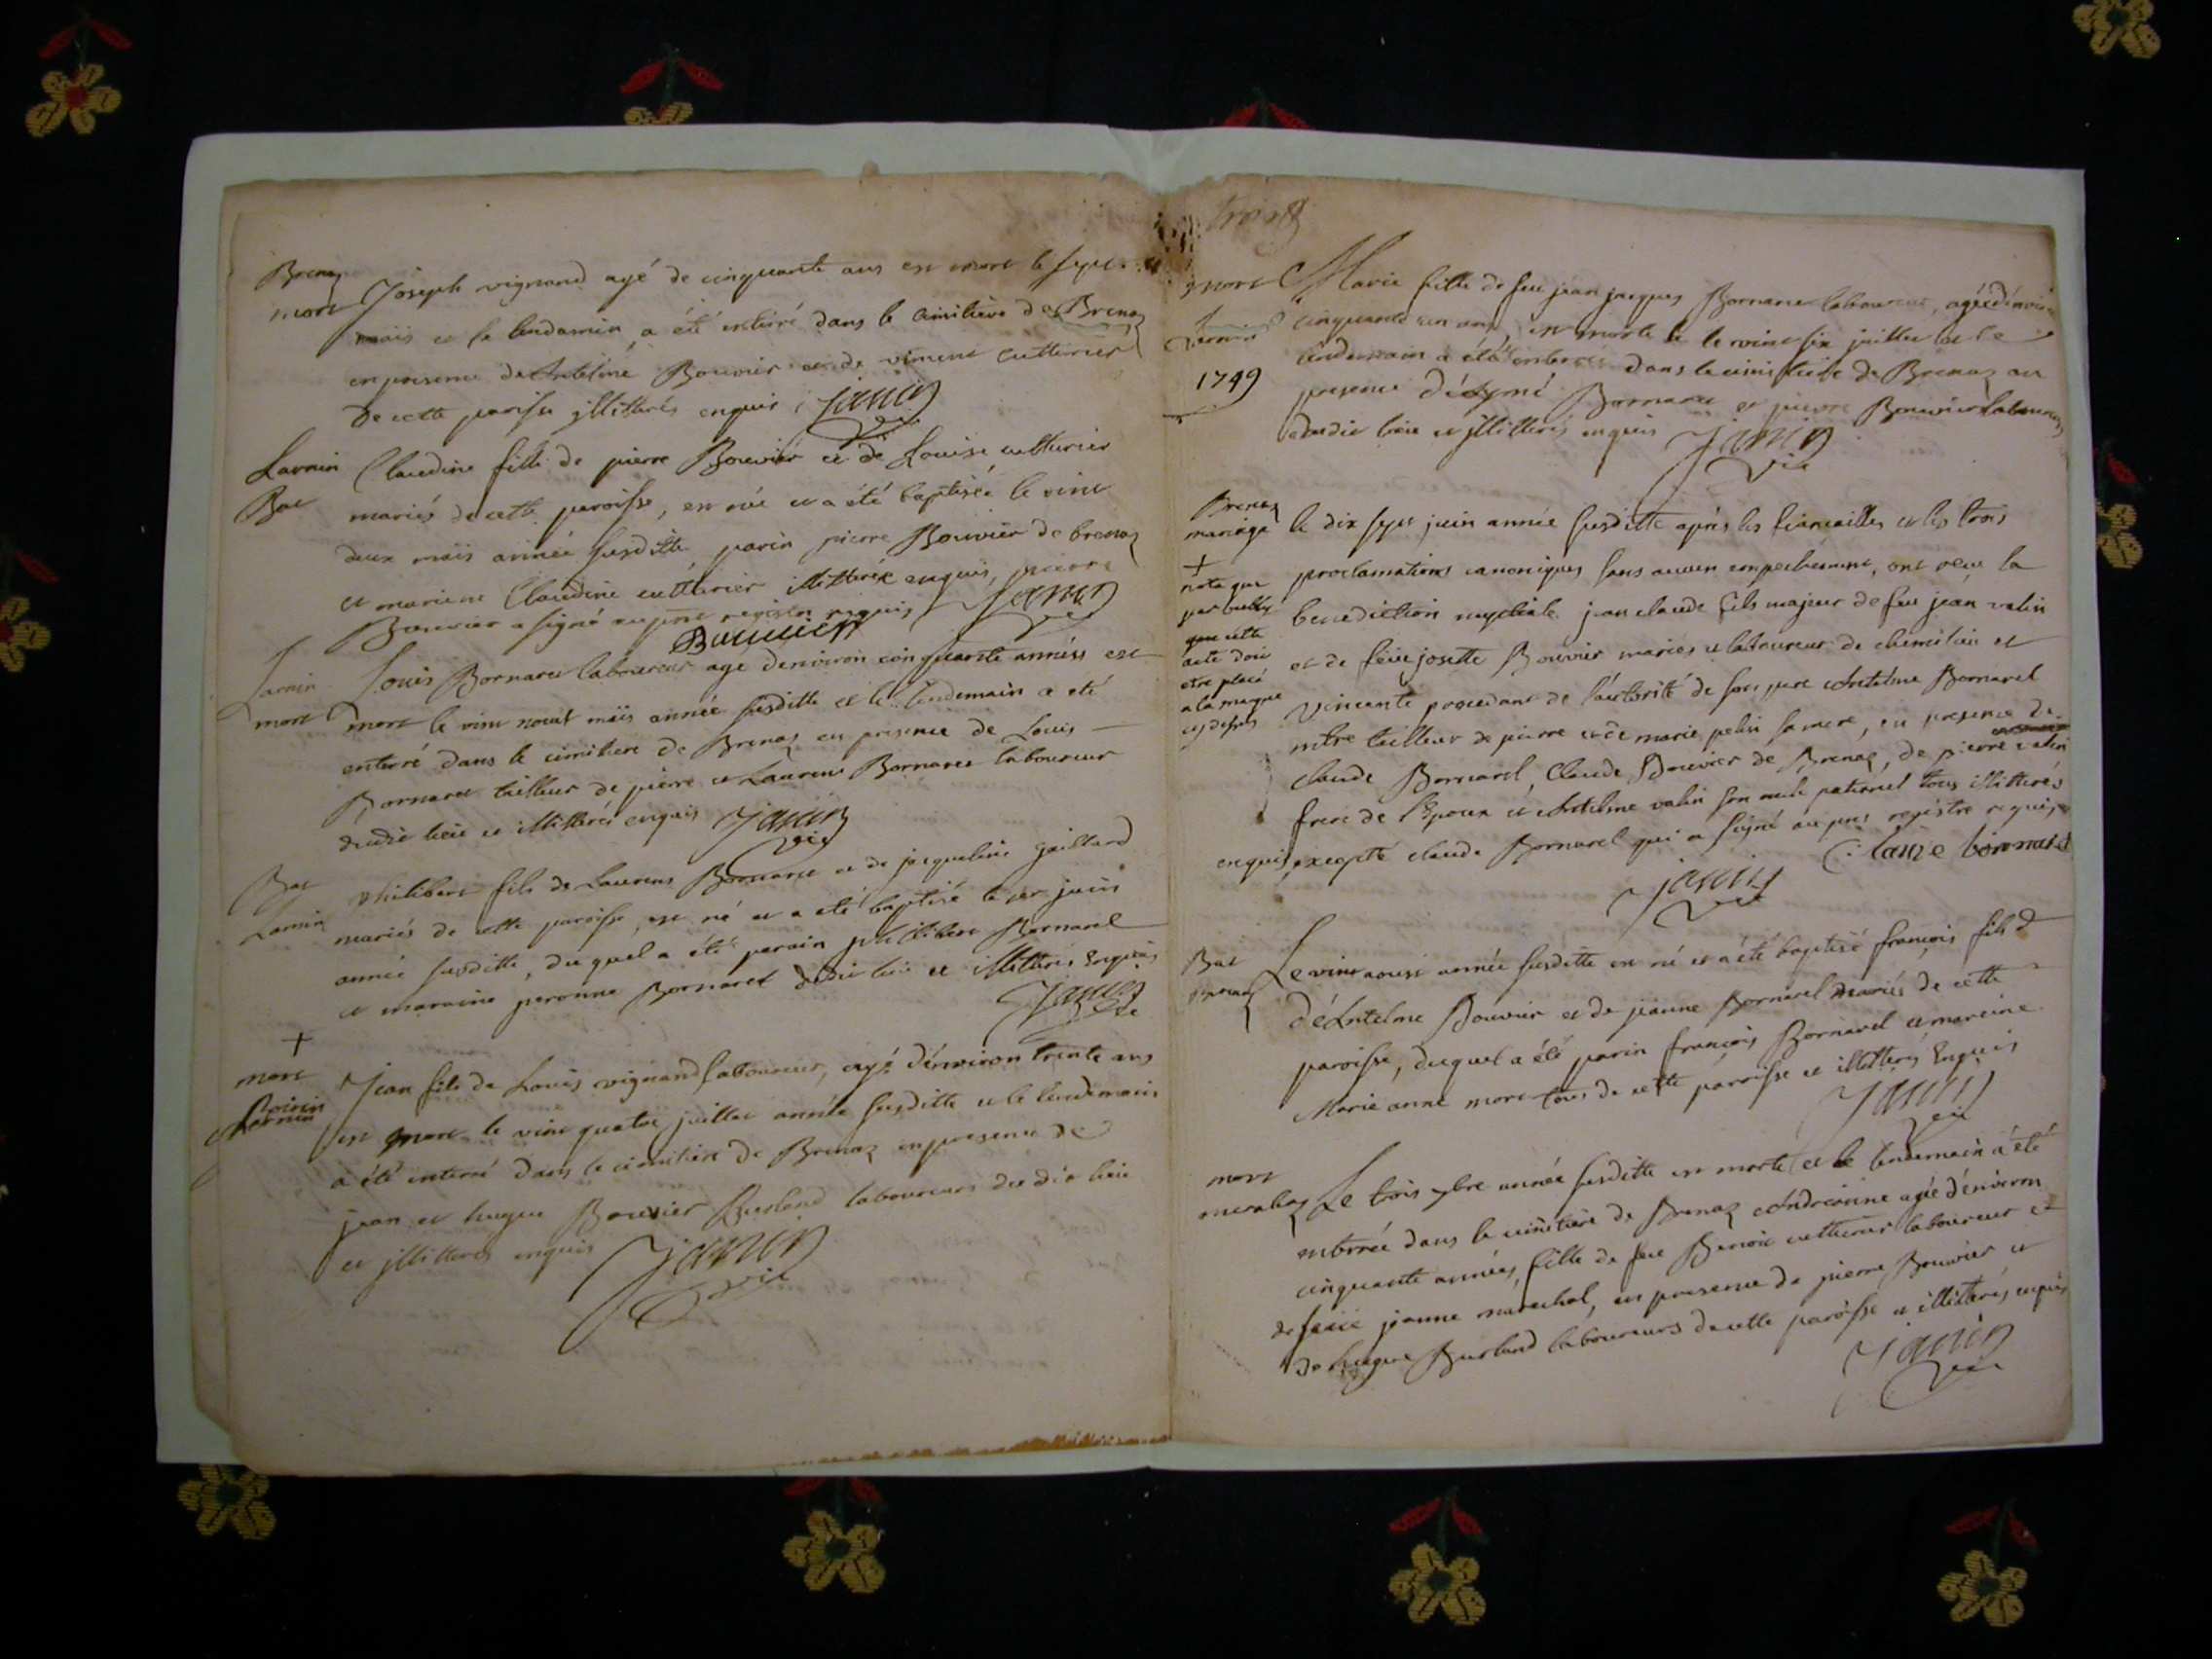 Brenaz
mort
Joseph vignand agé de cinquante ans est mort le sept
mais et le lendemin a été entérré dans le Cimitière de Brenaz
en presence de Antelme Bouvier et de viment cutturier
de cette paroisse jllitterés enquis Janin
vic
Larnin
Bat
Claudine fille de pierre Bouvier et de Louise cutturier
mariés de cette paroisse, est née et a été baptisée le vint
deux mais année susditte parin pierre Bouvier de brenaz
et mareine Claudine cutturier illitterée enquis, pierre
Bouvier a signé au pnt registre requis Janin
vic
Bouvier
Larnin
mort
Louis Bornarel laboureur agé denviron cinquante années est
mort le vint neuf mais année susditte et le lendemain a eté
enterré dans le cimitiere de Brenaz en presence de Louis
Bornarel tailleur de pierre et Laurens Bornarel laboureur
dudit lieu et illitterés enquis Janin
vic
Bat
Larnin
philibert fils de Laurens Bornarel et de jacqueline gaillard
mariés de cette paroisse, est né et a eté baptisé le er juin
année susditte, du quel a été parain philibert Bornarel
et maraine peronne Bornarel dudit lieu et illitterés Enquis
Janin
vic
+
mort
Larnin
Jean fils de Louis vignand laboureur, agé d'environ trente ans
est mort le vint quatre juillet année susditte et le lendemain
a été enterré dans le cimitiere de Brenaz en presence de
jean et hugue Bouvier Burland laboureurs du dit lieu
et jllitterés enquis Janin
vic
trois
mort
Larnin
1749
Marie fille de feu jean jacques Bornarel laboureur, agée d'environ
cinquante un ans est morte le vint six juillet et le
lendemain a été enterrée dans le cimitiere de Brenaz en
presence d'Aymé Bornarel et pierre Bouvier laboureurs
dudit lieu et jllitterés enquis Janin
vic
Brenaz
mariage
+
note que
cette
acte doit
etre placé
a la marque
cy dessus
le dix sept juin année susditte après les fiançailles et les trois
proclamations canoniques sans aucun empechement, ont reçu la
benediction nuptiale jean claude fils majeur de feu jean valin
et de feüe josette Bouvier mariés et laboureur de chemilieu et
vincente procedant de l'autorité de son pere Antelme Bornarel
mtre tailleur de pierre et de marie pelin sa mere, en presence de
claude Bornarel, Claude Bouvier de Brenaz, de pierre valin
frere de l'Epoux et Antelme valin son oncle paternel tous illitterés
enquis, excepté claude Bornarel qui a signé au pnt registre requis
Claude bornarel
Janin
vic
Bat
Brenaz
Le vint aoust année susditte est né et a été baptisé françois fils
d'Antelme Bouvier et de jeanne Bornarel mariés de cette
paroisse, duquel a été parin françois Bornarel et mareine
Marie anne mort tous de cette paroisse et illitterés Enquis
Janin
vic
mort
Le trois 7bre année susditte est morte et le lendemain a été
enterrée dans le cimitiere de Brenaz Andréanne agée d'environ
cinquante années, fille de feu Benoit cutturier laboureur et
de feüe jeanne marechal, en presence de pierre Bouvier et
de hugue Burland laboureurs de cette paroisse et illitterés enquis
Janin
vic